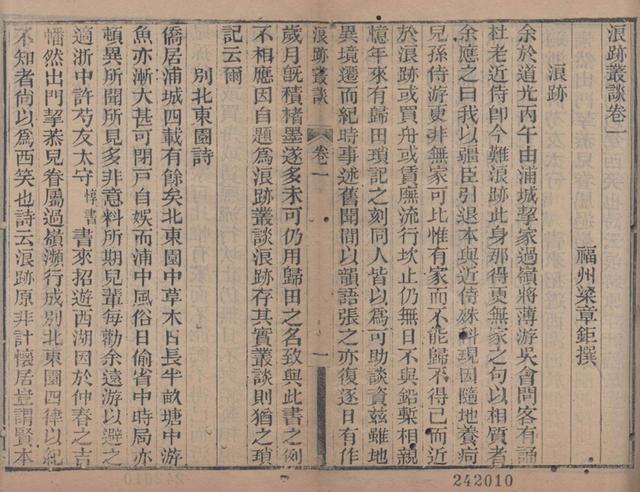 浪跡叢談卷一
福州梁章鉅撰
浪跡
余於道光丙午由浦城挈家過嶺將薄游吳會問客有誦
杜老近侍卽今難浪跡此身那得更無家之句以相質者
余應之曰我以疆臣引退本與近侍殊科現因隨地養疴
兒孫侍游更非無家可比惟有家而不能歸不得已而近
於浪跡或買舟或賃廡流行坎止仍無日不與鉛槧相親
憶年來有歸田瑣記之刻同人皆以爲可助談資茲雖地
異境遷而紀時事述舊聞間以韻語張之亦復逐日有作
浪跡叢談
卷一
一
歲月旣積楮墨遂多未可仍用歸田之名致與此書之例
不相應因自題爲浪跡叢談浪跡存其實叢談則猶之瑣
記云爾
別北東園詩
僑居浦城四載有餘矣北東園中草木日長半畝塘中游
魚亦漸大甚可閉戶自娛而浦中風俗日偷省中時局亦
頓異所聞所見多非意料所期兒輩每勸余遠游以避之
適浙中許芍友太守
惇書
書來招遊西湖因於仲春之吉
幡然出門挈恭兒眷屬過嶺瀕行成別北東園四律以紀
不知者尙以爲西笑也詩云浪跡原非計懷居豈謂賢本
242010